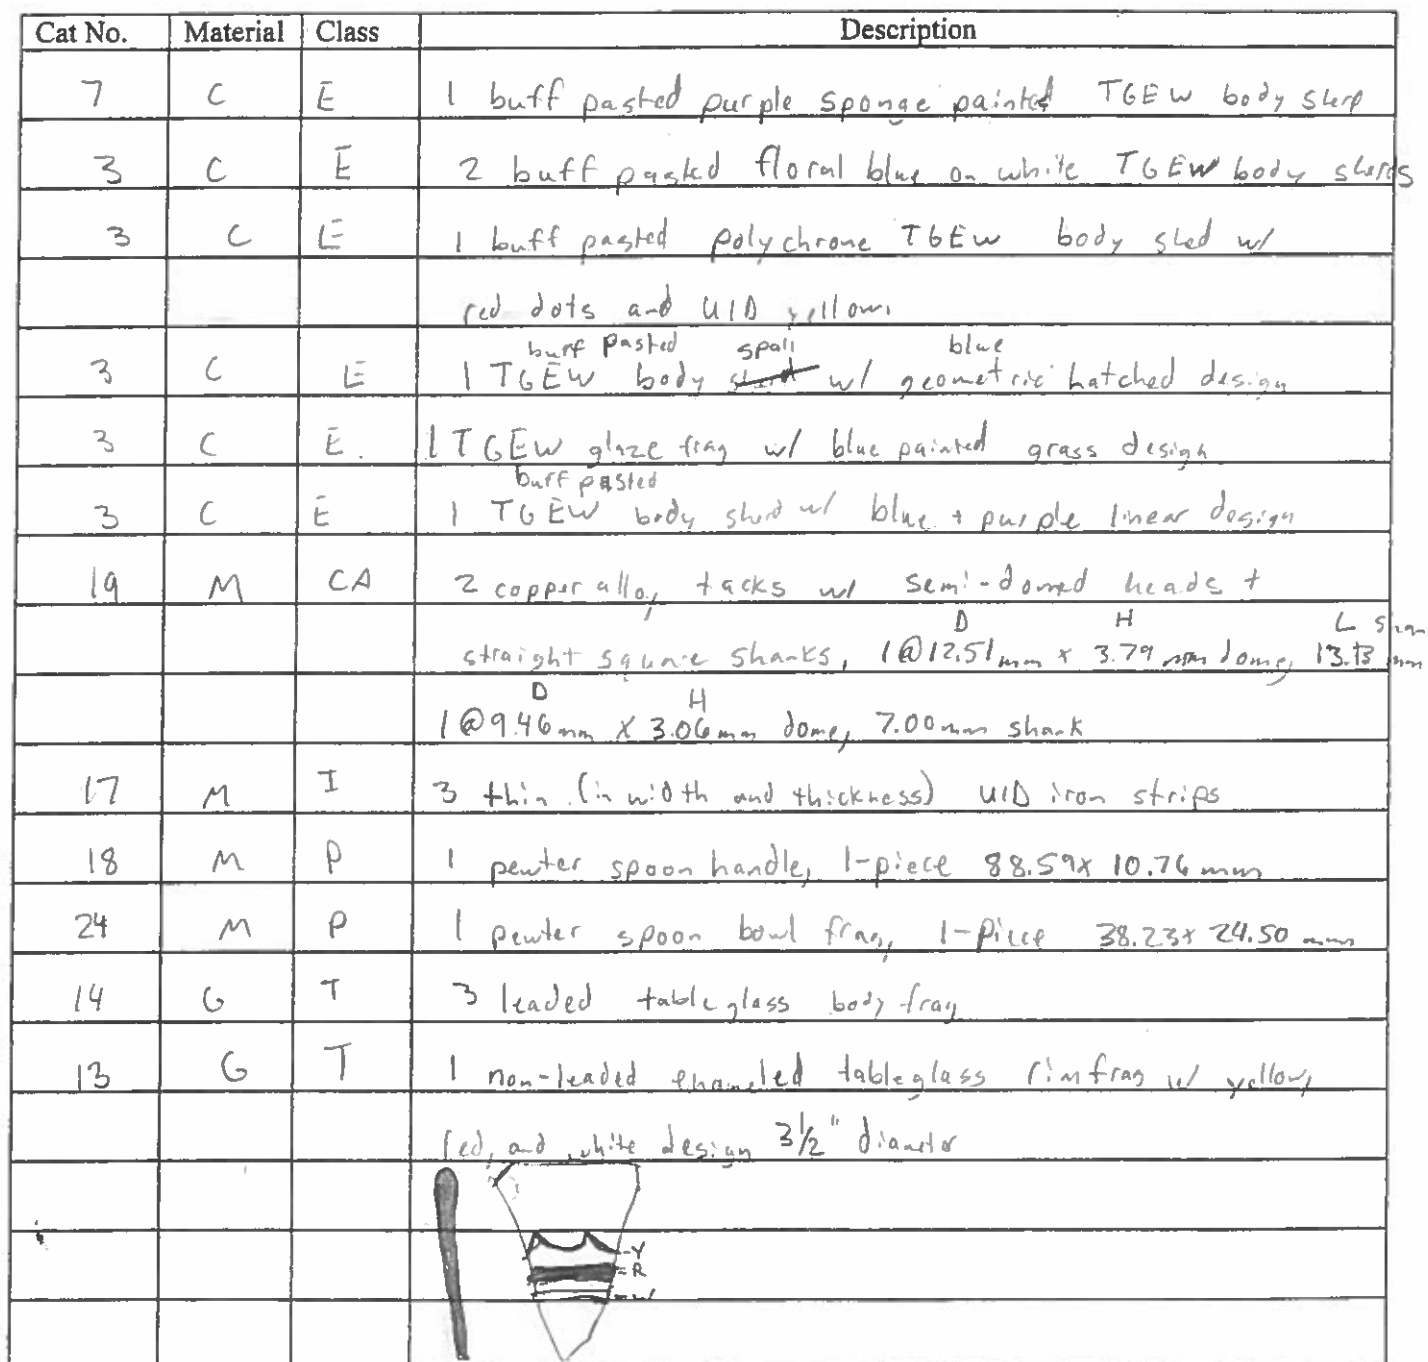 Cat No. Material Class Description
7 C E 1 buff pasted purple sponge painted TGEW body sherd
3 C E 2 buff pasted floral blue on white TGEW body sherds
3 C E 1 buff pasted polychrome TGEW body sherd w/
red dots and UID yellow
buff pasted spall blue
3 C E 1 TGEW body sherd w/ geometric hatched design
3 C E. 1 TGEW glaze frag w/ blue painted grass design
buff pasted
3 C E 1 TGEW body sherd w/ blue + purple linear design
19 M CA 2 copper alloy tacks w/ semi-domed heads +
D H L
straight square shanks, 1@12.51mm x 3.79 mm dome, mm
D H
1@9.46mm x 3.06mm dome, 7.00mm shank
17 M I 3 thin (in width and thickness) UID iron strips
18 M P 1 pewter spoon handle, 1-piece 88.59x 10.76 mm
24 M P 1 pewter spoon bowl frag, 1-piece 38.23x 24.50 mm
14 G T 3 leaded table glass body frag
13 G T 1 non-leaded enameled tableglass rim frag w/ yellow,
red, and white design 3½" diameter
-Y
-R
-W